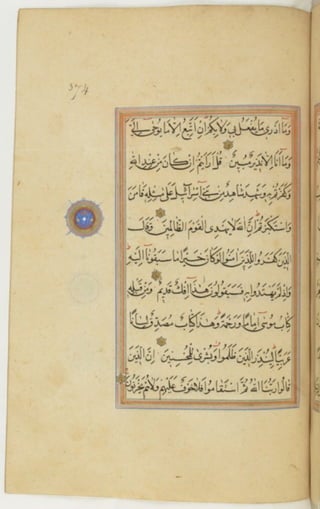 وَمَا أَدْرِي مَا يُفْعَلُ بِي وَلَا بِكُمْ إِنْ أَتَّبِعُ إِلَّا مَا يُوحَىٰ إِلَيَّ
وَمَا أَنَا إِلَّا نَذِيرٌ مُبِينٌ قُلْ أَرَأَيْتُمْ إِنْ كَانَ مِنْ عِنْدِ اللَّهِ
وَكَفَرْتُمْ بِهِ وَشَهِدَ شَاهِدٌ مِنْ بَنِي إِسْرَائِيلَ عَلَىٰ مِثْلِهِ فَآمَنَ
وَاسْتَكْبَرْتُمْ إِنَّ اللَّهَ لَا يَهْدِي الْقَوْمَ الظَّالِمِينَ وَقَالَ
الَّذِينَ كَفَرُوا لِلَّذِينَ آمَنُوا لَوْ كَانَ خَيْرًا مَا سَبَقُونَا إِلَيْهِ
وَإِذْ لَمْ يَهْتَدُوا بِهِ فَسَيَقُولُونَ هَٰذَا إِفْكٌ قَدِيمٌ وَمِنْ قَبْلِهِ
كِتَابُ مُوسَىٰ إِمَامًا وَرَحْمَةً وَهَٰذَا كِتَابٌ مُصَدِّقٌ لِسَانًا
عَرَبِيًّا لِيُنْذِرَ الَّذِينَ ظَلَمُوا وَبُشْرَىٰ لِلْمُحْسِنِينَ إِنَّ الَّذِينَ
قَالُوا رَبُّنَا اللَّهُ ثُمَّ اسْتَقَامُوا فَلَا خَوْفٌ عَلَيْهِمْ وَلَا هُمْ يَحْزَنُونَ